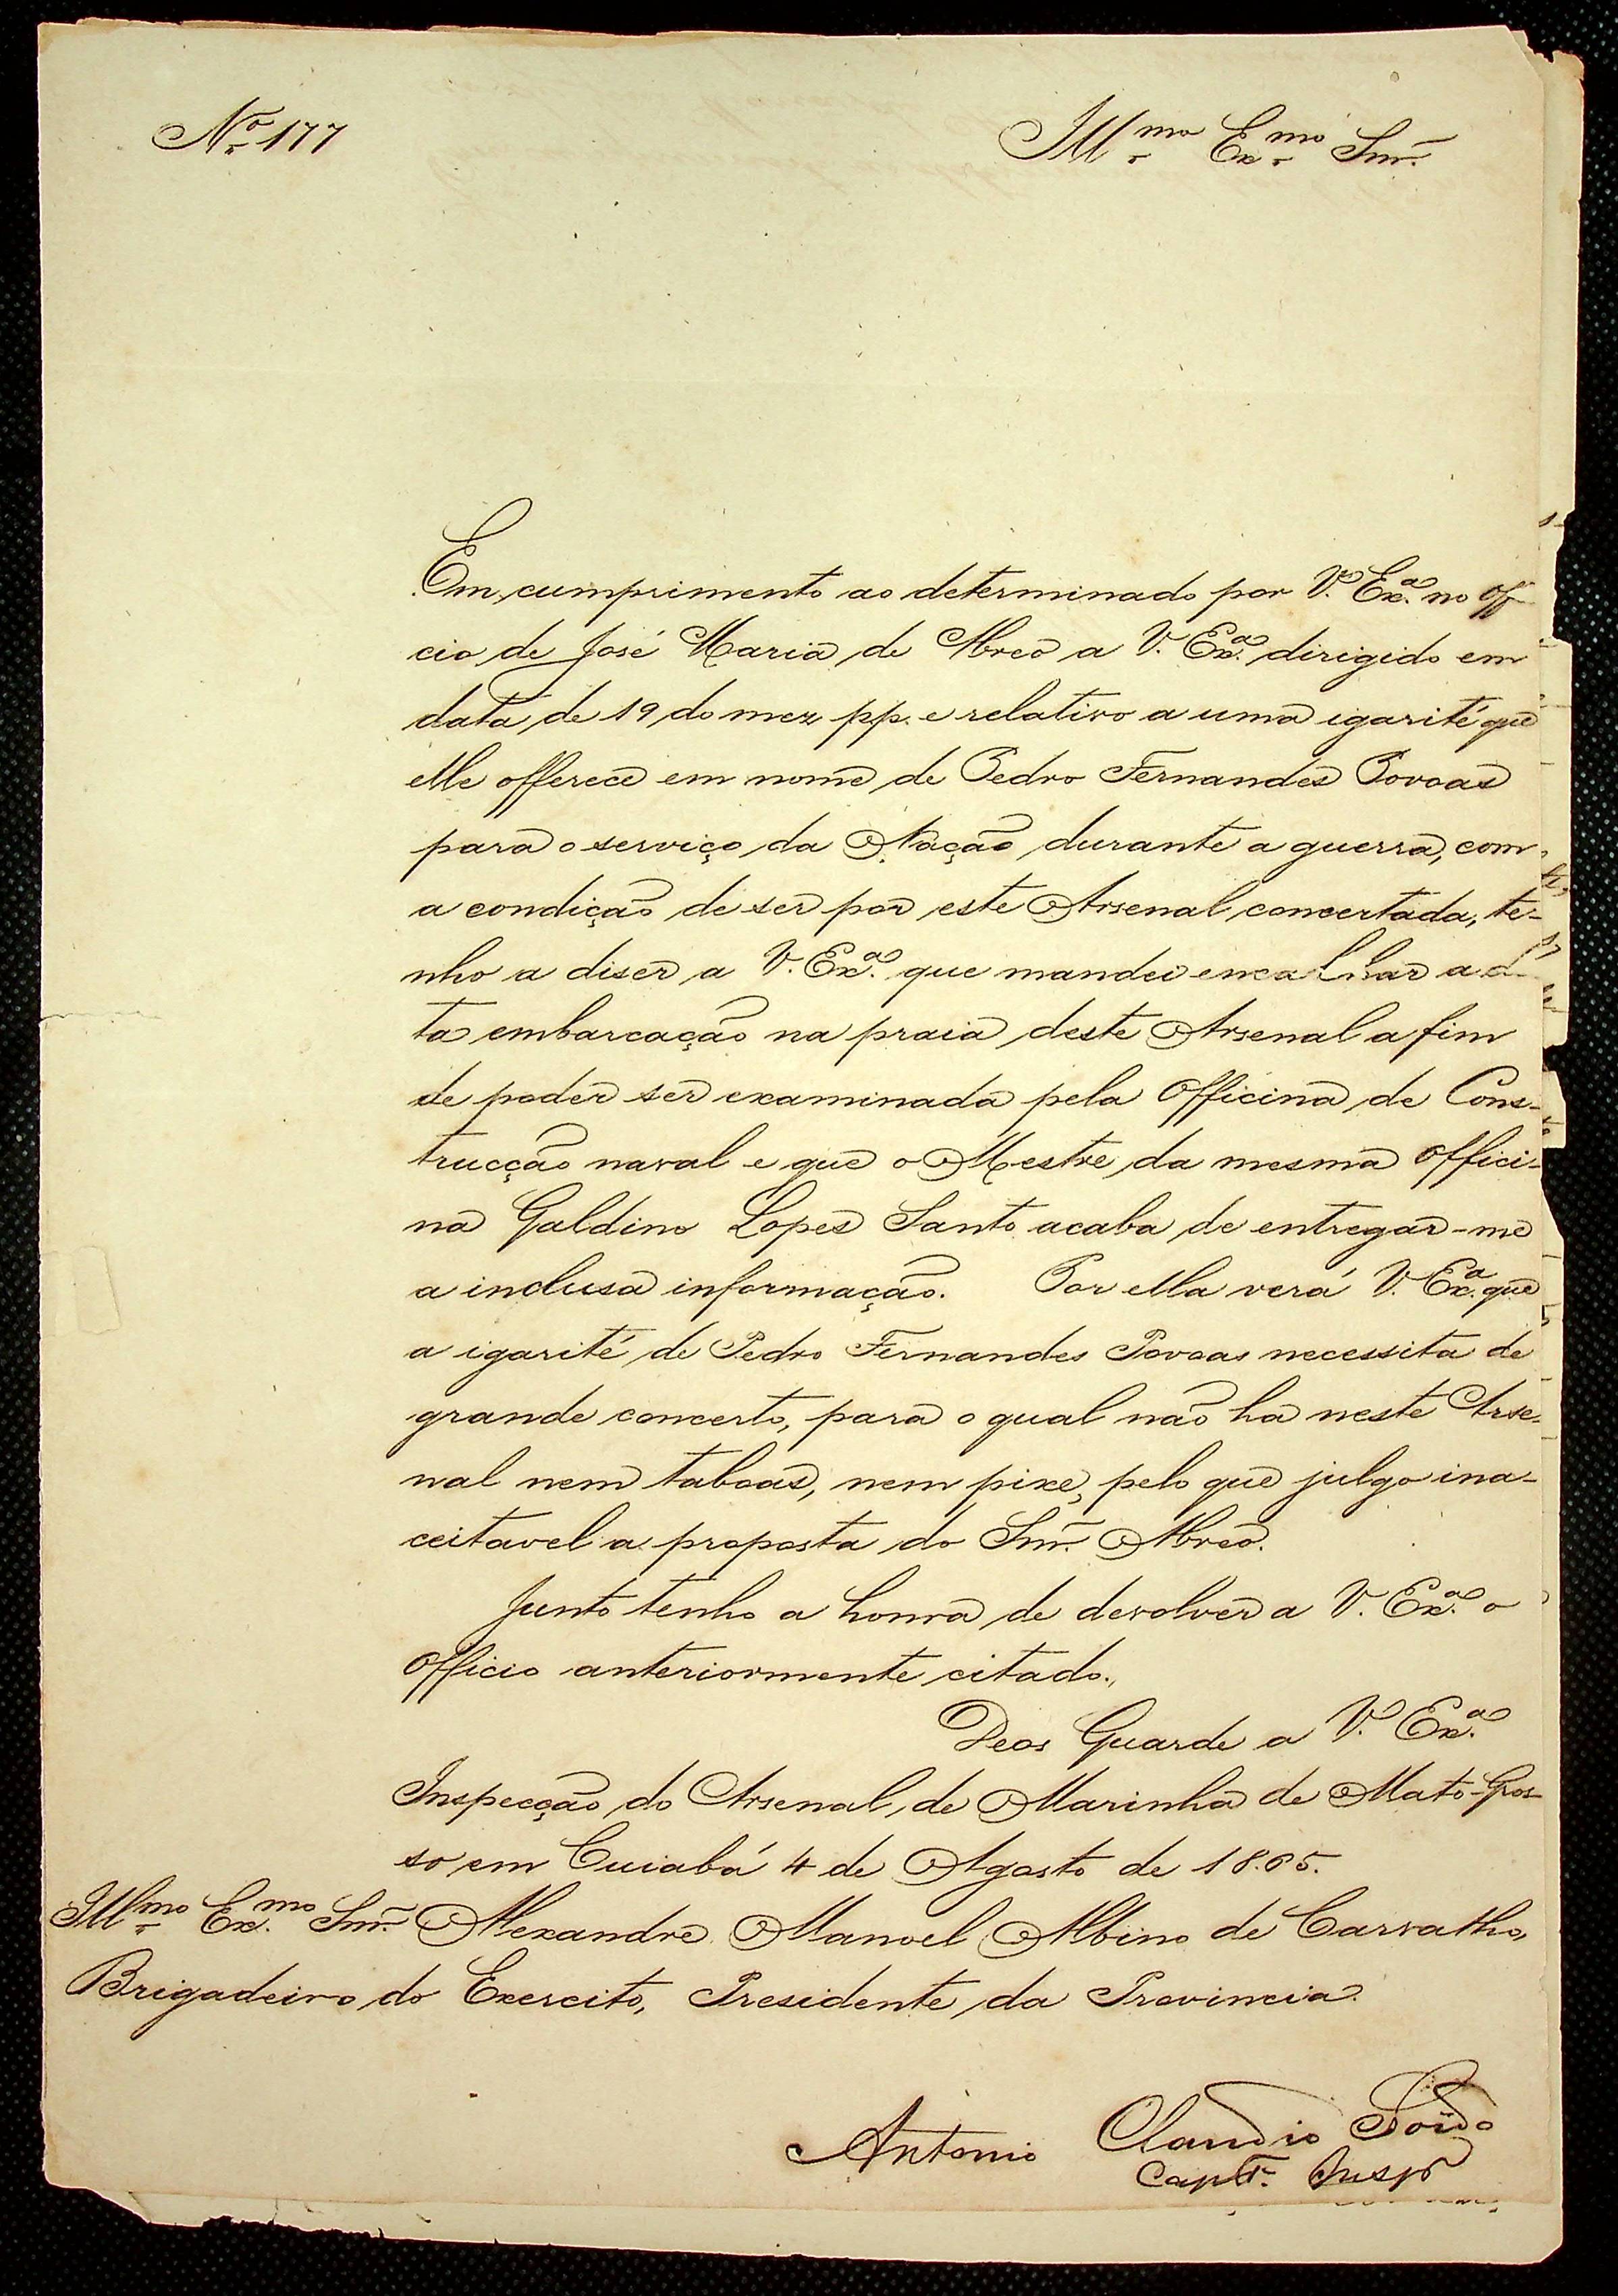 Nº 177
Illmo Exmo Snr.
Em cumprimento ao determinado por V. Exª. no Offi
cio de José Maria de Abreo a V. Exª. dirigido em
data de 19 do mez pp. e relativo a uma igarité que
elle offerece em nome de Pedro Fernandes Povoas
para o serviço da Nação durante a guerra, com
a condição de ser por este Arsenal concertada, te-
nho a diser a V. Exª. que mandei encalhar a di
ta embarcação na praia deste Arsenal a fim
de poder ser examinada pela Officina de Cons-
trucção naval e que o Mestre da mesma Offici-
na Galdino Lopes Santo acaba de entregar-me
a inclusa informação. Por ella verá V. Exª. que
a igarité de Pedro Fernandes Povoas necessita de
grande concerto, para o qual não ha neste Arse-
nal nem taboas, nem pixe, pelo que julgo ina-
ceitavel a proposta do Snr. Abreo.
Junto tenho a honra de devolver a V. Exª. o
Officio anteriormente citado.
Deos Guarde a V. Exª.
Inspecção do Arsenal de Marinha de Mato-Gros-
so em Cuiabá 4 de Agosto de 1865.
Illmo Exmo Snr. Alexandre Manoel Albino de Carvalho,
Brigadeiro do Exercito, Presidente da Provincia.
Antonio Claudio Soido
Capt. Inspor